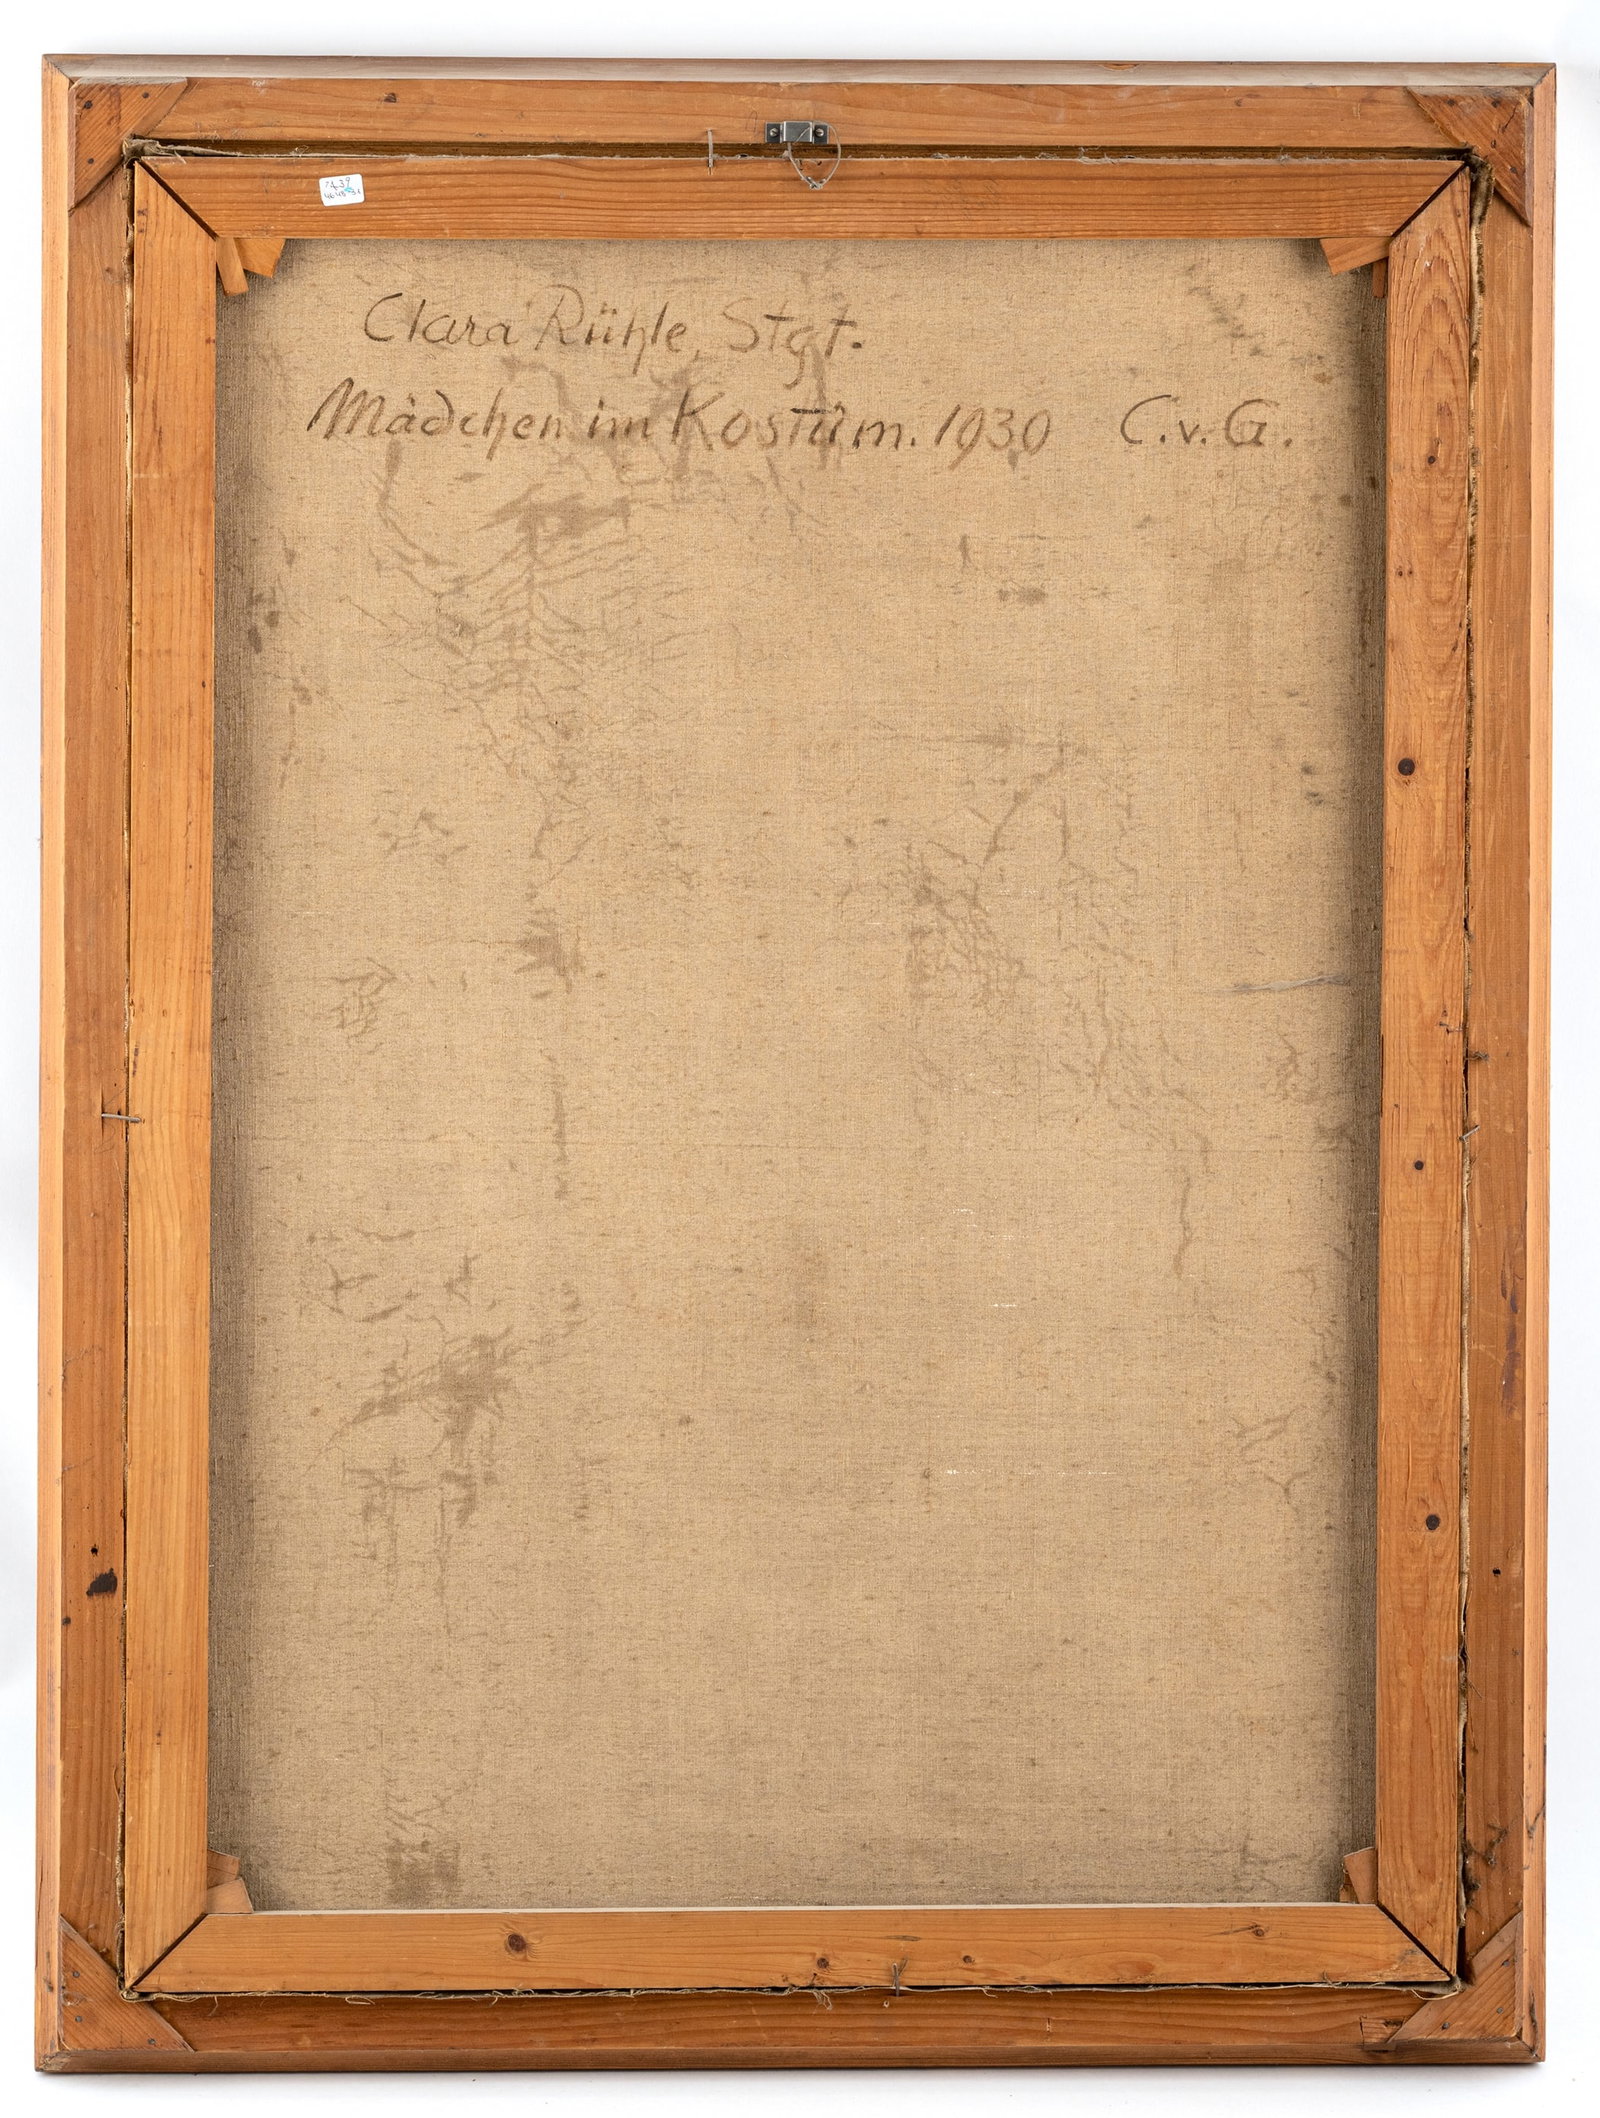 Clara Rühle, Stgt.
Mädchen im Kostüm. 1930 C. v. G.